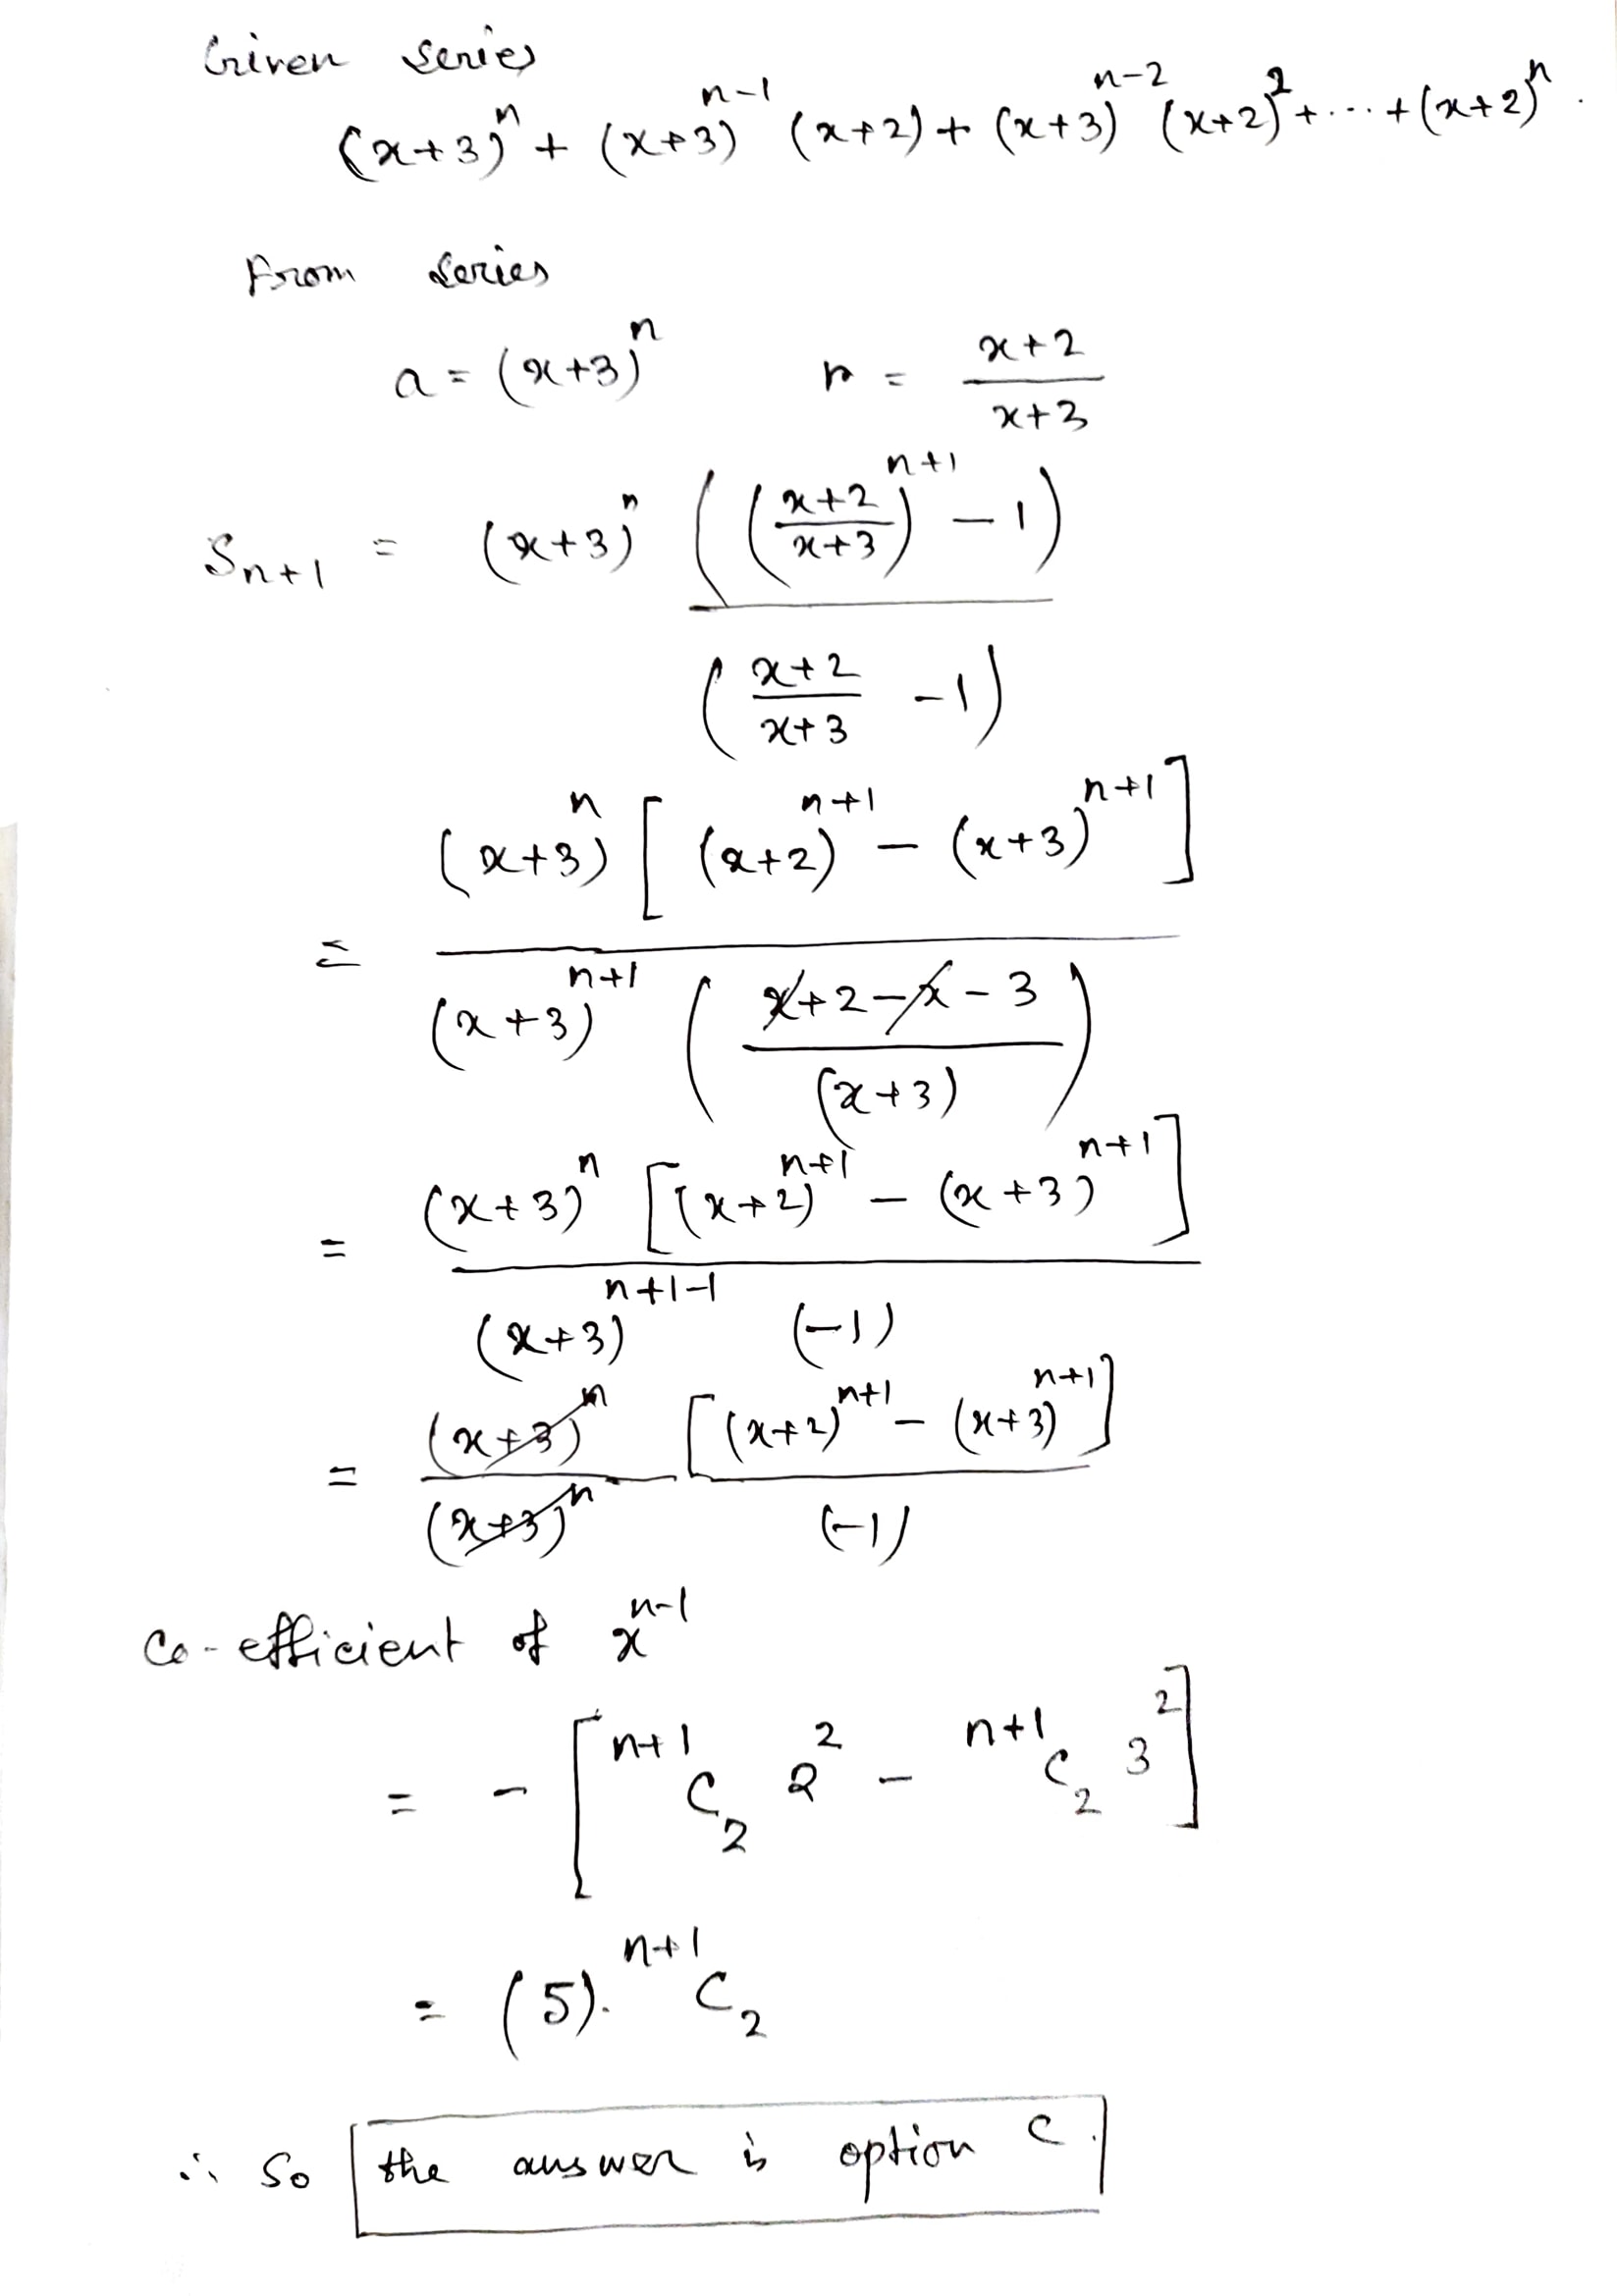 Given series
(x+3)^n + (x+3)^{n-1} (x+2) + (x+3)^{n-2} (x+2)^2 + .... + (x+2)^n .
From series
a = (x+3)^n r = \frac{x+2}{x+3}
S_{n+1} = (x+3)^n \frac{((\frac{x+2}{x+3})^{n+1} - 1)}{(\frac{x+2}{x+3} - 1)}
= \frac{(x+3)^n [(x+2)^{n+1} - (x+3)^{n+1}]}{(x+3)^{n+1} (\frac{x+2-x-3}{(x+3)})}
= \frac{(x+3)^n [(x+2)^{n+1} - (x+3)^{n+1}]}{(x+3)^{n+1-1} (-1)}
= \frac{(x+3)^n}{(x+3)^n} \frac{[(x+2)^{n+1} - (x+3)^{n+1}]}{(-1)}
Co-efficient of x^{n-1}
= - [^{n+1}C_2 2^2 - ^{n+1}C_2 3^2]
= (5). ^{n+1}C_2
∴ So the answer is option C.